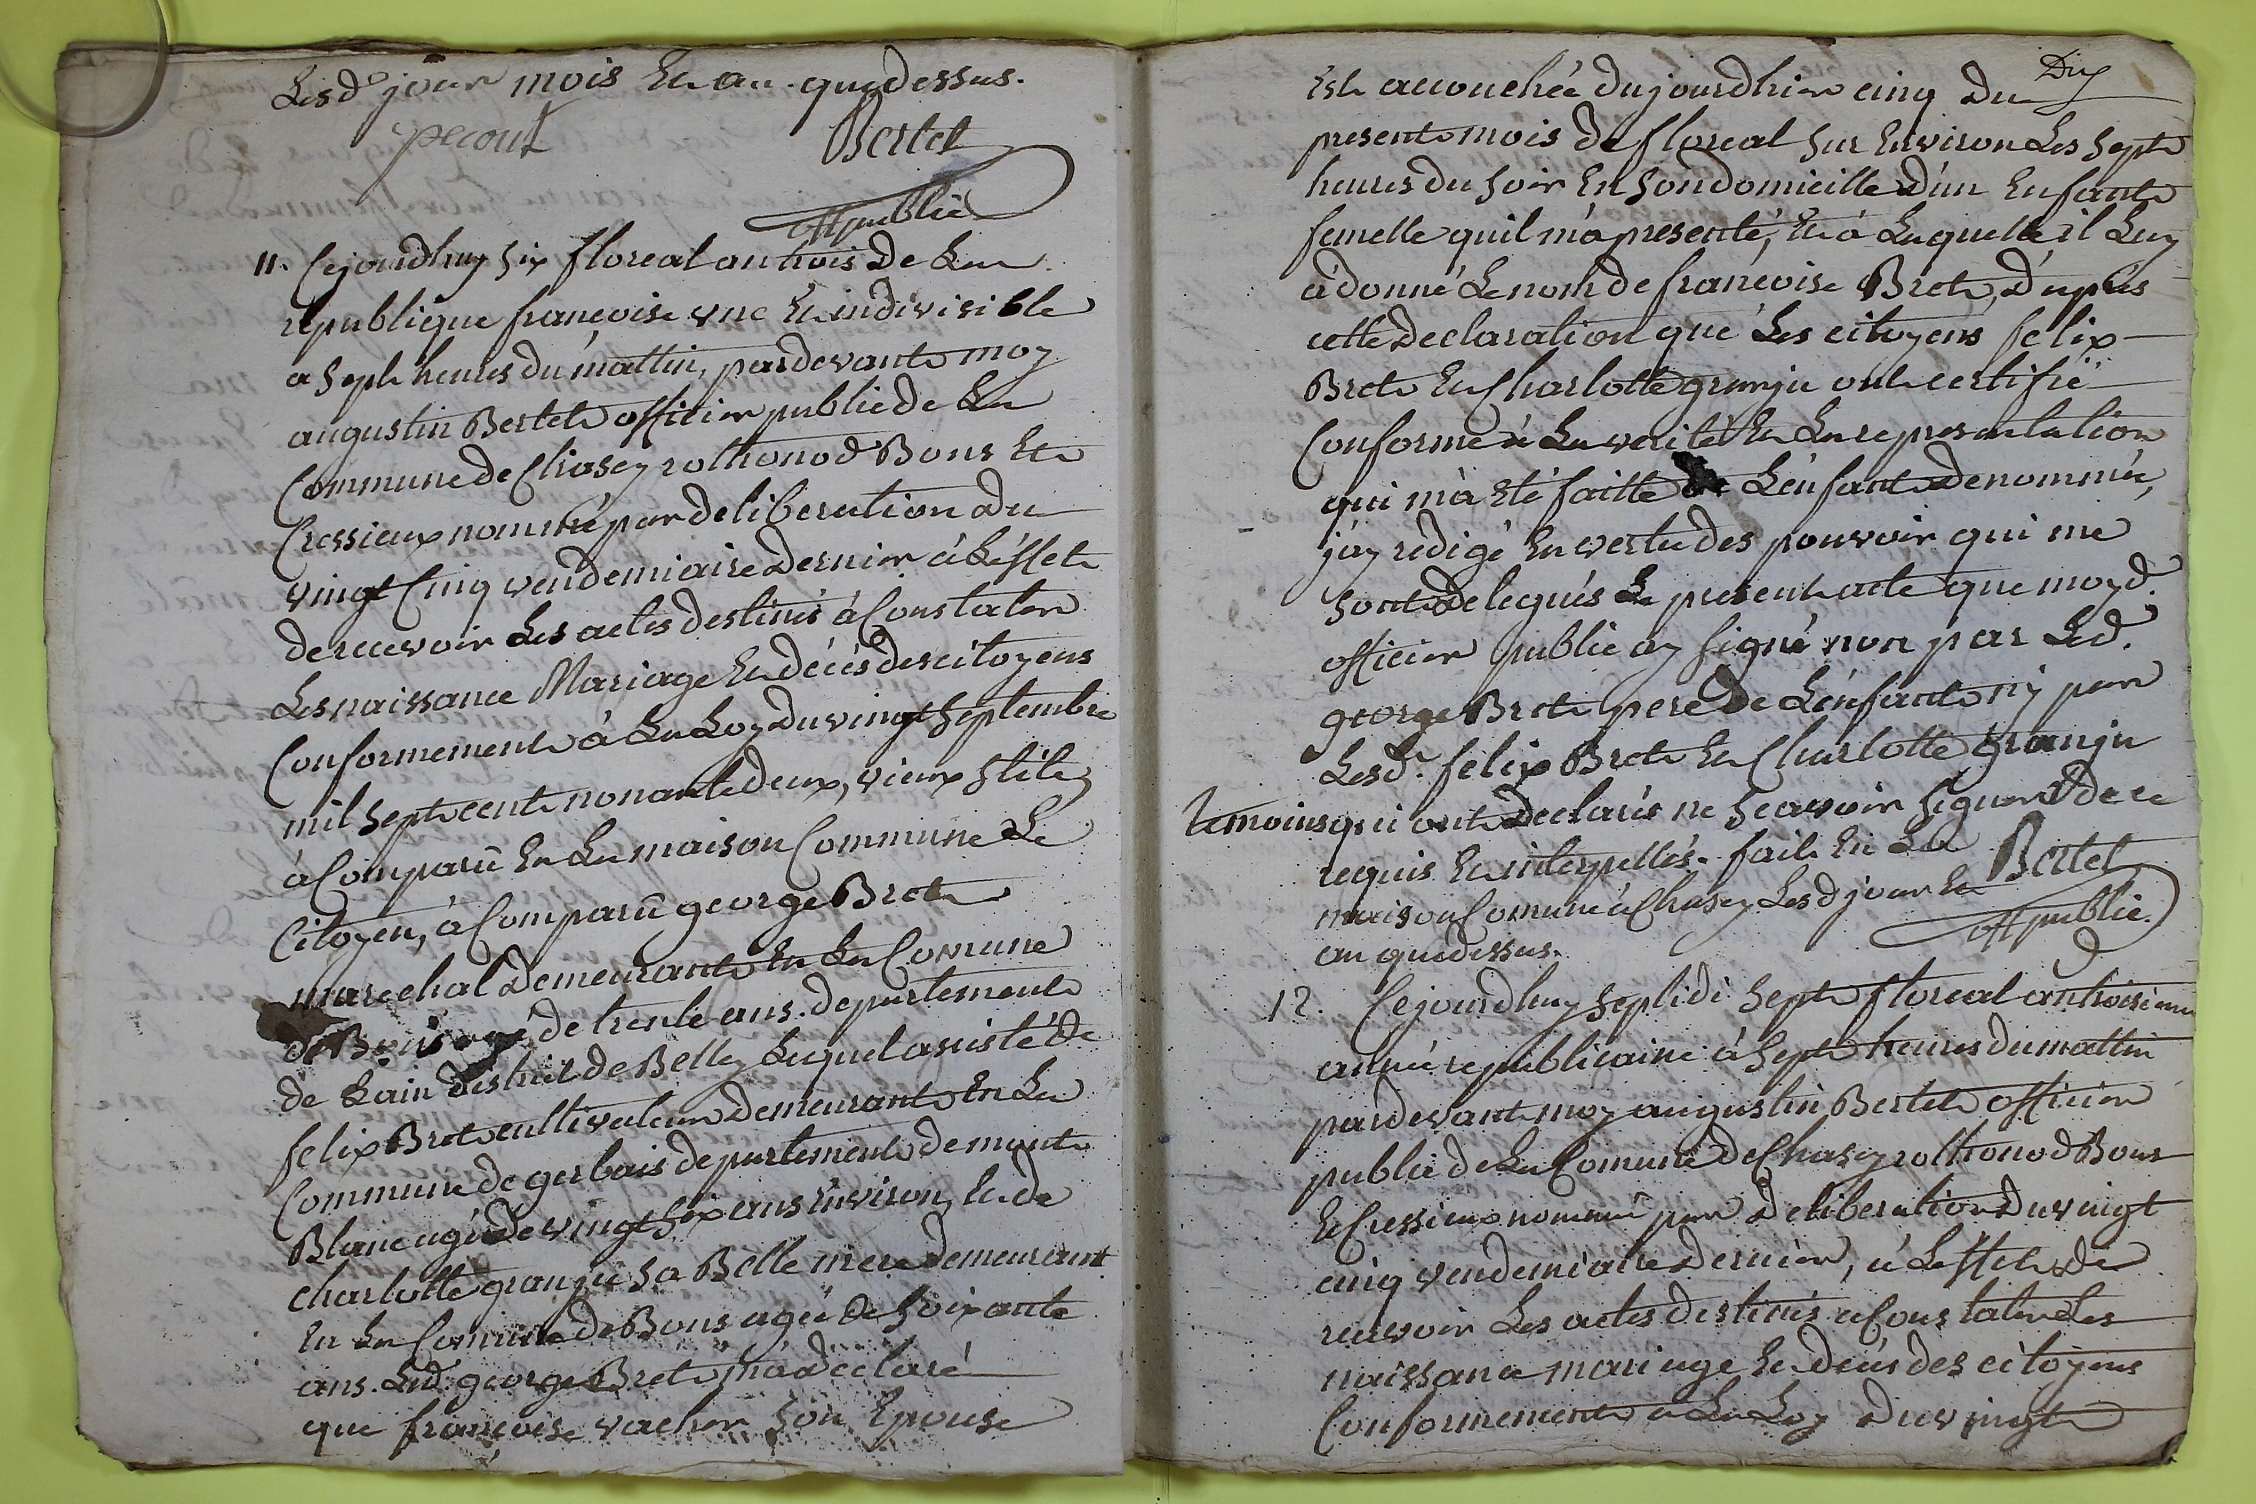 Lesd. jour mois Et an que dessus.
pecout Bertet
off public
11. Cejourdhuy six floreal an trois de La
republique francoise une Et indivisible
a sept heures du mattin, pardevant moy
augustin Bertet officier public de La
Commune de Chasey rothonod Bons Et
Cressieux nommé par deliberation du
vingt Cinq vendemiaire dernier à Leffet
de recevoir Les actes destinés à Constater
Les naissance Mariage Et décés des citoyens
Conformement à La Loy du vingt Septembre
mil Sept cent nonante deux, vieux stile
à Comparû En La maison Commune Le
Citoyen, à Comparû george Bret
marechal demeurant En La Comune
de Bons agé de trente ans. departement
de Lain district de Belley Lequel assisté de
felix Bret cultivateur demeurant En La
Commune de gerbais departement de mont
Blanc agé de vingt six ans Environ, Et de
charlotte granju sa Belle mere demeurant
En La Comune de Bons agée de Soixante
ans. Led. george Bret m'à declaré
que francoise vacher son Epouse
Dix
Est accouchée du jourdhier cinq du
present mois de floreal sur Environ Les sept
heures du soir En son domicille d'un Enfant
femelle quil m'à presenté, Et à Laquelle il Luy
à donné Le nom de francoise Bret, d'après
cette declaration que Les citoyens felix
Bret Et Charlotte granju ont certifié
Conforme à La verité Et La representation
qui m'à été faitte de L'énfant denommée,
j'ay redigé En vertu des pouvoir qui me
sont delegués Le present acte que moyd.
officier public ay signé non par Led.
george Bret pere de L'énfant ny par
Lesd. felix Bret Et Charlotte granju
temoins qui ont declarés ne scavoir signer de ce
requis Et interpellés. fait En La
maison Comune à Chasey Lesd jour Et Bertet
an que dessus. off public.
12. Cejourdhuy septidi sept floreal an troisieme
année republicaine à sept heures du mattin
pardevant moy augustin Bertet officier
public de La Comune de Chasey rothonod Bons
Et Cressieux nommé par deliberation du vingt
cinq vendemiaire dernier, à Leffet de
recevoir Les actes destinés à Constater Les
naissance mariage Et decés des citoyens
Conformement à La Loy du vingt